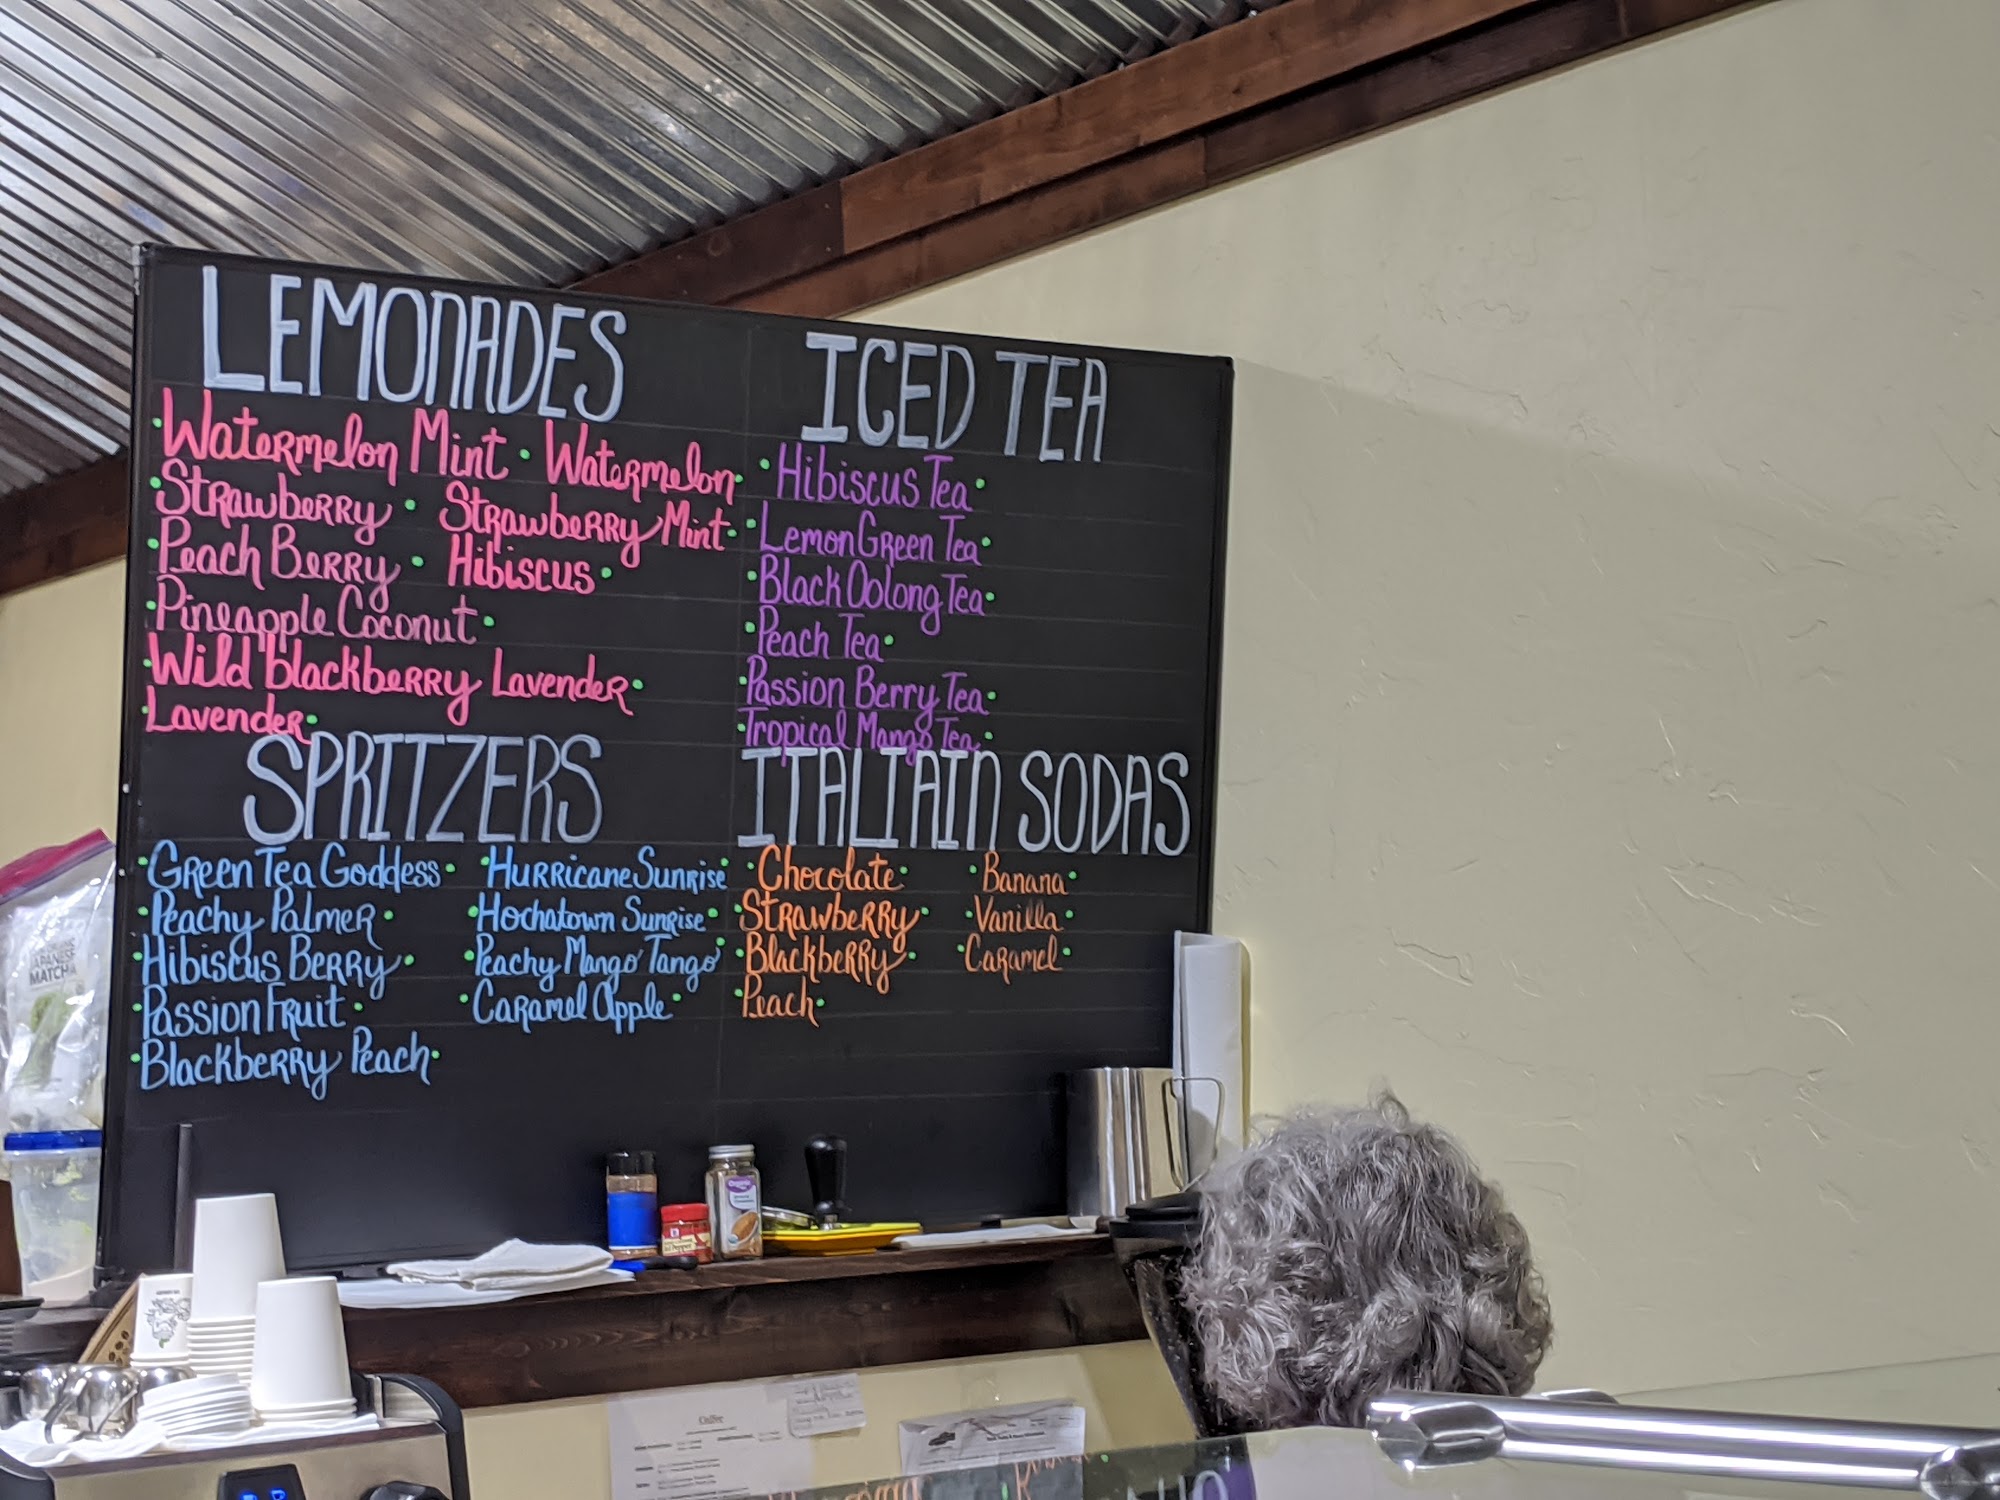 LEMONADES
·Watermelon Mint · Watermelon·
·Strawberry · Strawberry Mint·
·Peach Berry · Hibiscus·
·Pineapple Coconut·
·Wild blackberry Lavender·
·Lavender·
ICED TEA
·Hibiscus Tea·
·Lemon Green Tea·
·Black Oolong Tea·
·Peach Tea·
·Passion Berry Tea·
·Tropical Mango Tea·
SPRITZERS
·Green Tea Goddess· ·Hurricane Sunrise
·Peachy Palmer· ·Hochatown Sunrise·
·Hibiscus Berry· ·Peachy Mango Tango·
·Passion Fruit· ·Caramel Apple·
·Blackberry Peach·
ITALIAIN SODAS
·Chocolate· ·Banana·
·Strawberry· ·Vanilla·
·Blackberry· ·Caramel·
·Peach·
JAPANESE
MATCHA
Organic
Coffee